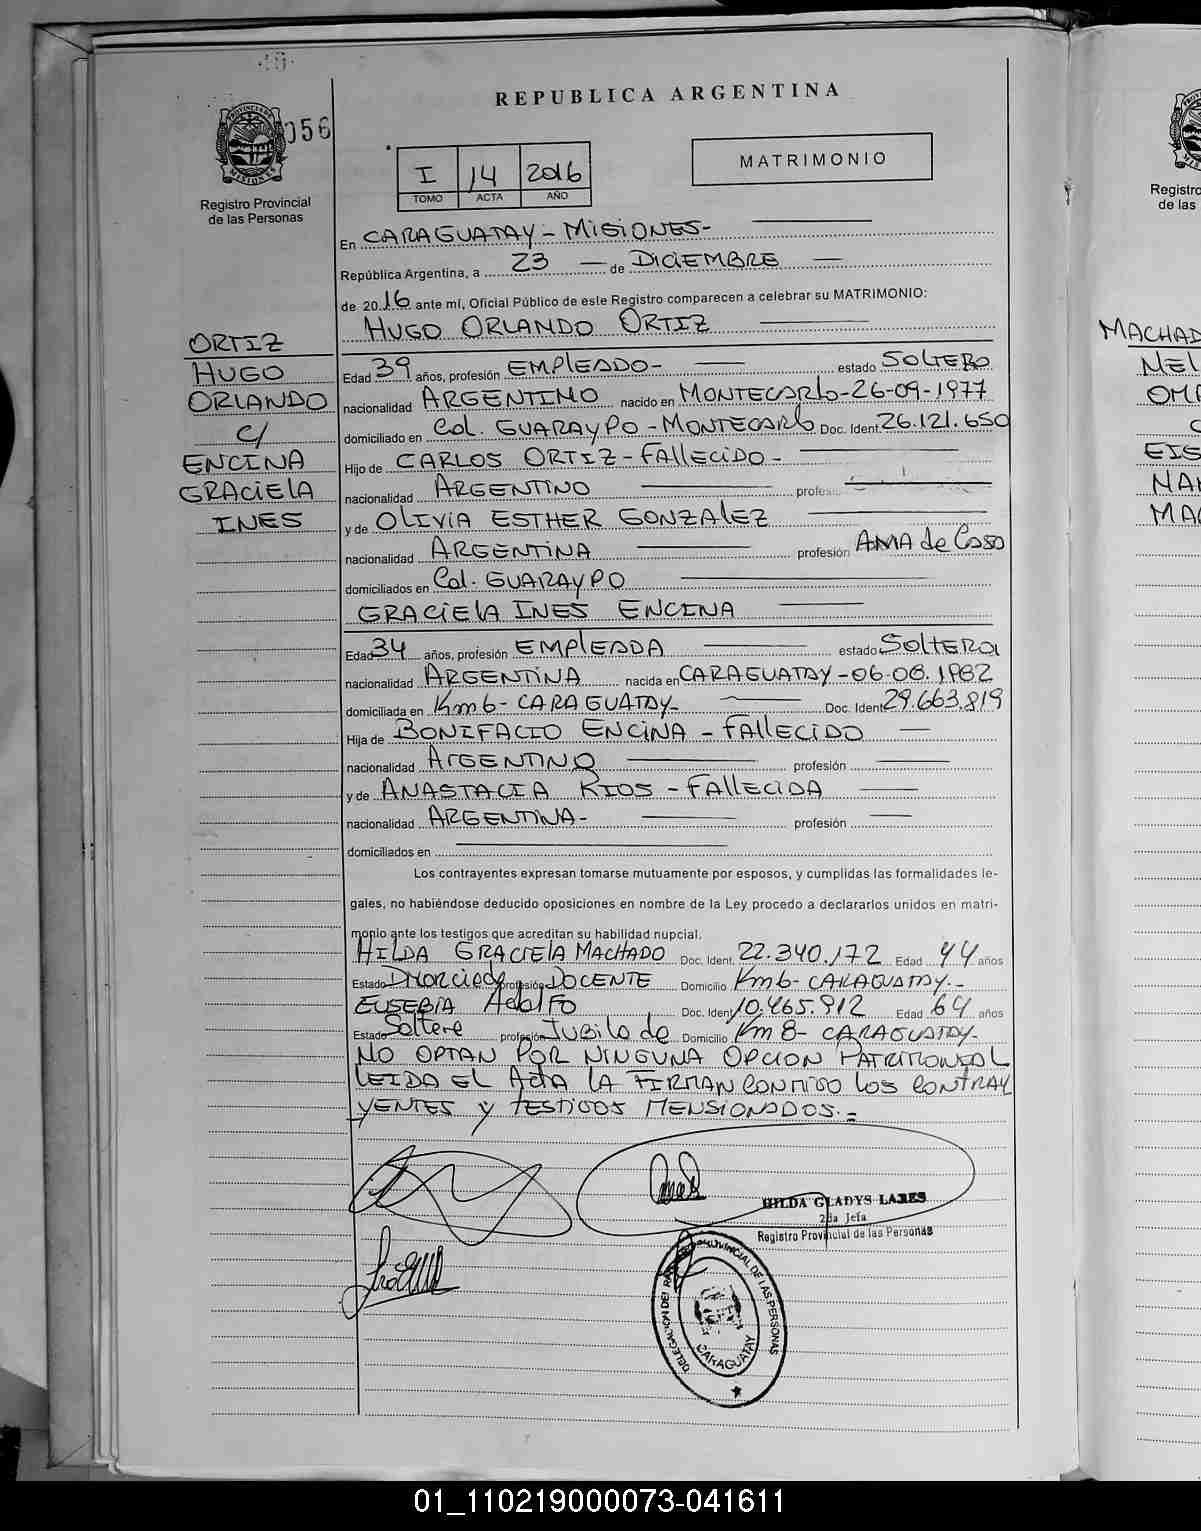 REPUBLICA ARGENTINA
PROVINCIA DE MISIONES
056
Registro Provincial
de las Personas
I 14 2016
TOMO ACTA AÑO
MATRIMONIO
En CARAGUATAY - MISIONES-
República Argentina, a 23 — de DICIEMBRE —
de 2016 ante mí, Oficial Público de este Registro comparecen a celebrar su MATRIMONIO:
HUGO ORLANDO ORTIZ
ORTIZ
HUGO
ORLANDO
c/
ENCINA
GRACIELA
INES
Edad 39 años, profesión EMPLEADO- estado SOLTERO
nacionalidad ARGENTINO nacido en MONTECARLO-26-09-1977
domiciliado en Col. GUARAYPO - MONTECARLO Doc. Ident. 26.121.650
Hijo de CARLOS ORTIZ - FALLECIDO -
nacionalidad ARGENTINO profesión
y de OLIVIA ESTHER GONZALEZ
nacionalidad ARGENTINA profesión AMA de Casa
domiciliados en Col. GUARAYPO
GRACIELA INES ENCINA
Edad 34 años, profesión EMPLEADA estado SOLTERA
nacionalidad ARGENTINA nacida en CARAGUATAY -06-08.1982
domiciliada en Km6- CARAGUATAY Doc. Ident 29.663.819
Hija de BONIFACIO ENCINA - FALLECIDO —
nacionalidad ARGENTINO profesión
y de ANASTACIA RIOS - FALLECIDA
nacionalidad ARGENTINA- profesión
domiciliados en
Los contrayentes expresan tomarse mutuamente por esposos, y cumplidas las formalidades le-
gales, no habiéndose deducido oposiciones en nombre de la Ley procedo a declararlos unidos en matri-
monio ante los testigos que acreditan su habilidad nupcial.
HILDA GRACIELA MACHADO Doc. Ident. 22.340.172 Edad 44 años
Estado Divorciada profesión DOCENTE Domicilio Km6- CARAGUATAY.-
EUSEBIA Adolfo Doc. Ident 10.465.912 Edad 64 años
Estado Soltere profesión Jubilo de Domicilio Km 8- CARAGUATAY-
NO OPTAN POR NINGUNA OPCION PATRIMONIAL
LEIDA EL ACTA LA FIRMAN CONMIGO los CONTRA
YENTES y TESTIGOS MENSIONADOS.=
HILDA GLADYS LARES
2da Jefa
Registro Provincial de las Personas
PROVINCIAL DE LAS PERSONAS
CARAGUATAY
MACHAD
NEL
OMI
EIS
NAN
MA
Registro
de las
01_110219000073-041611